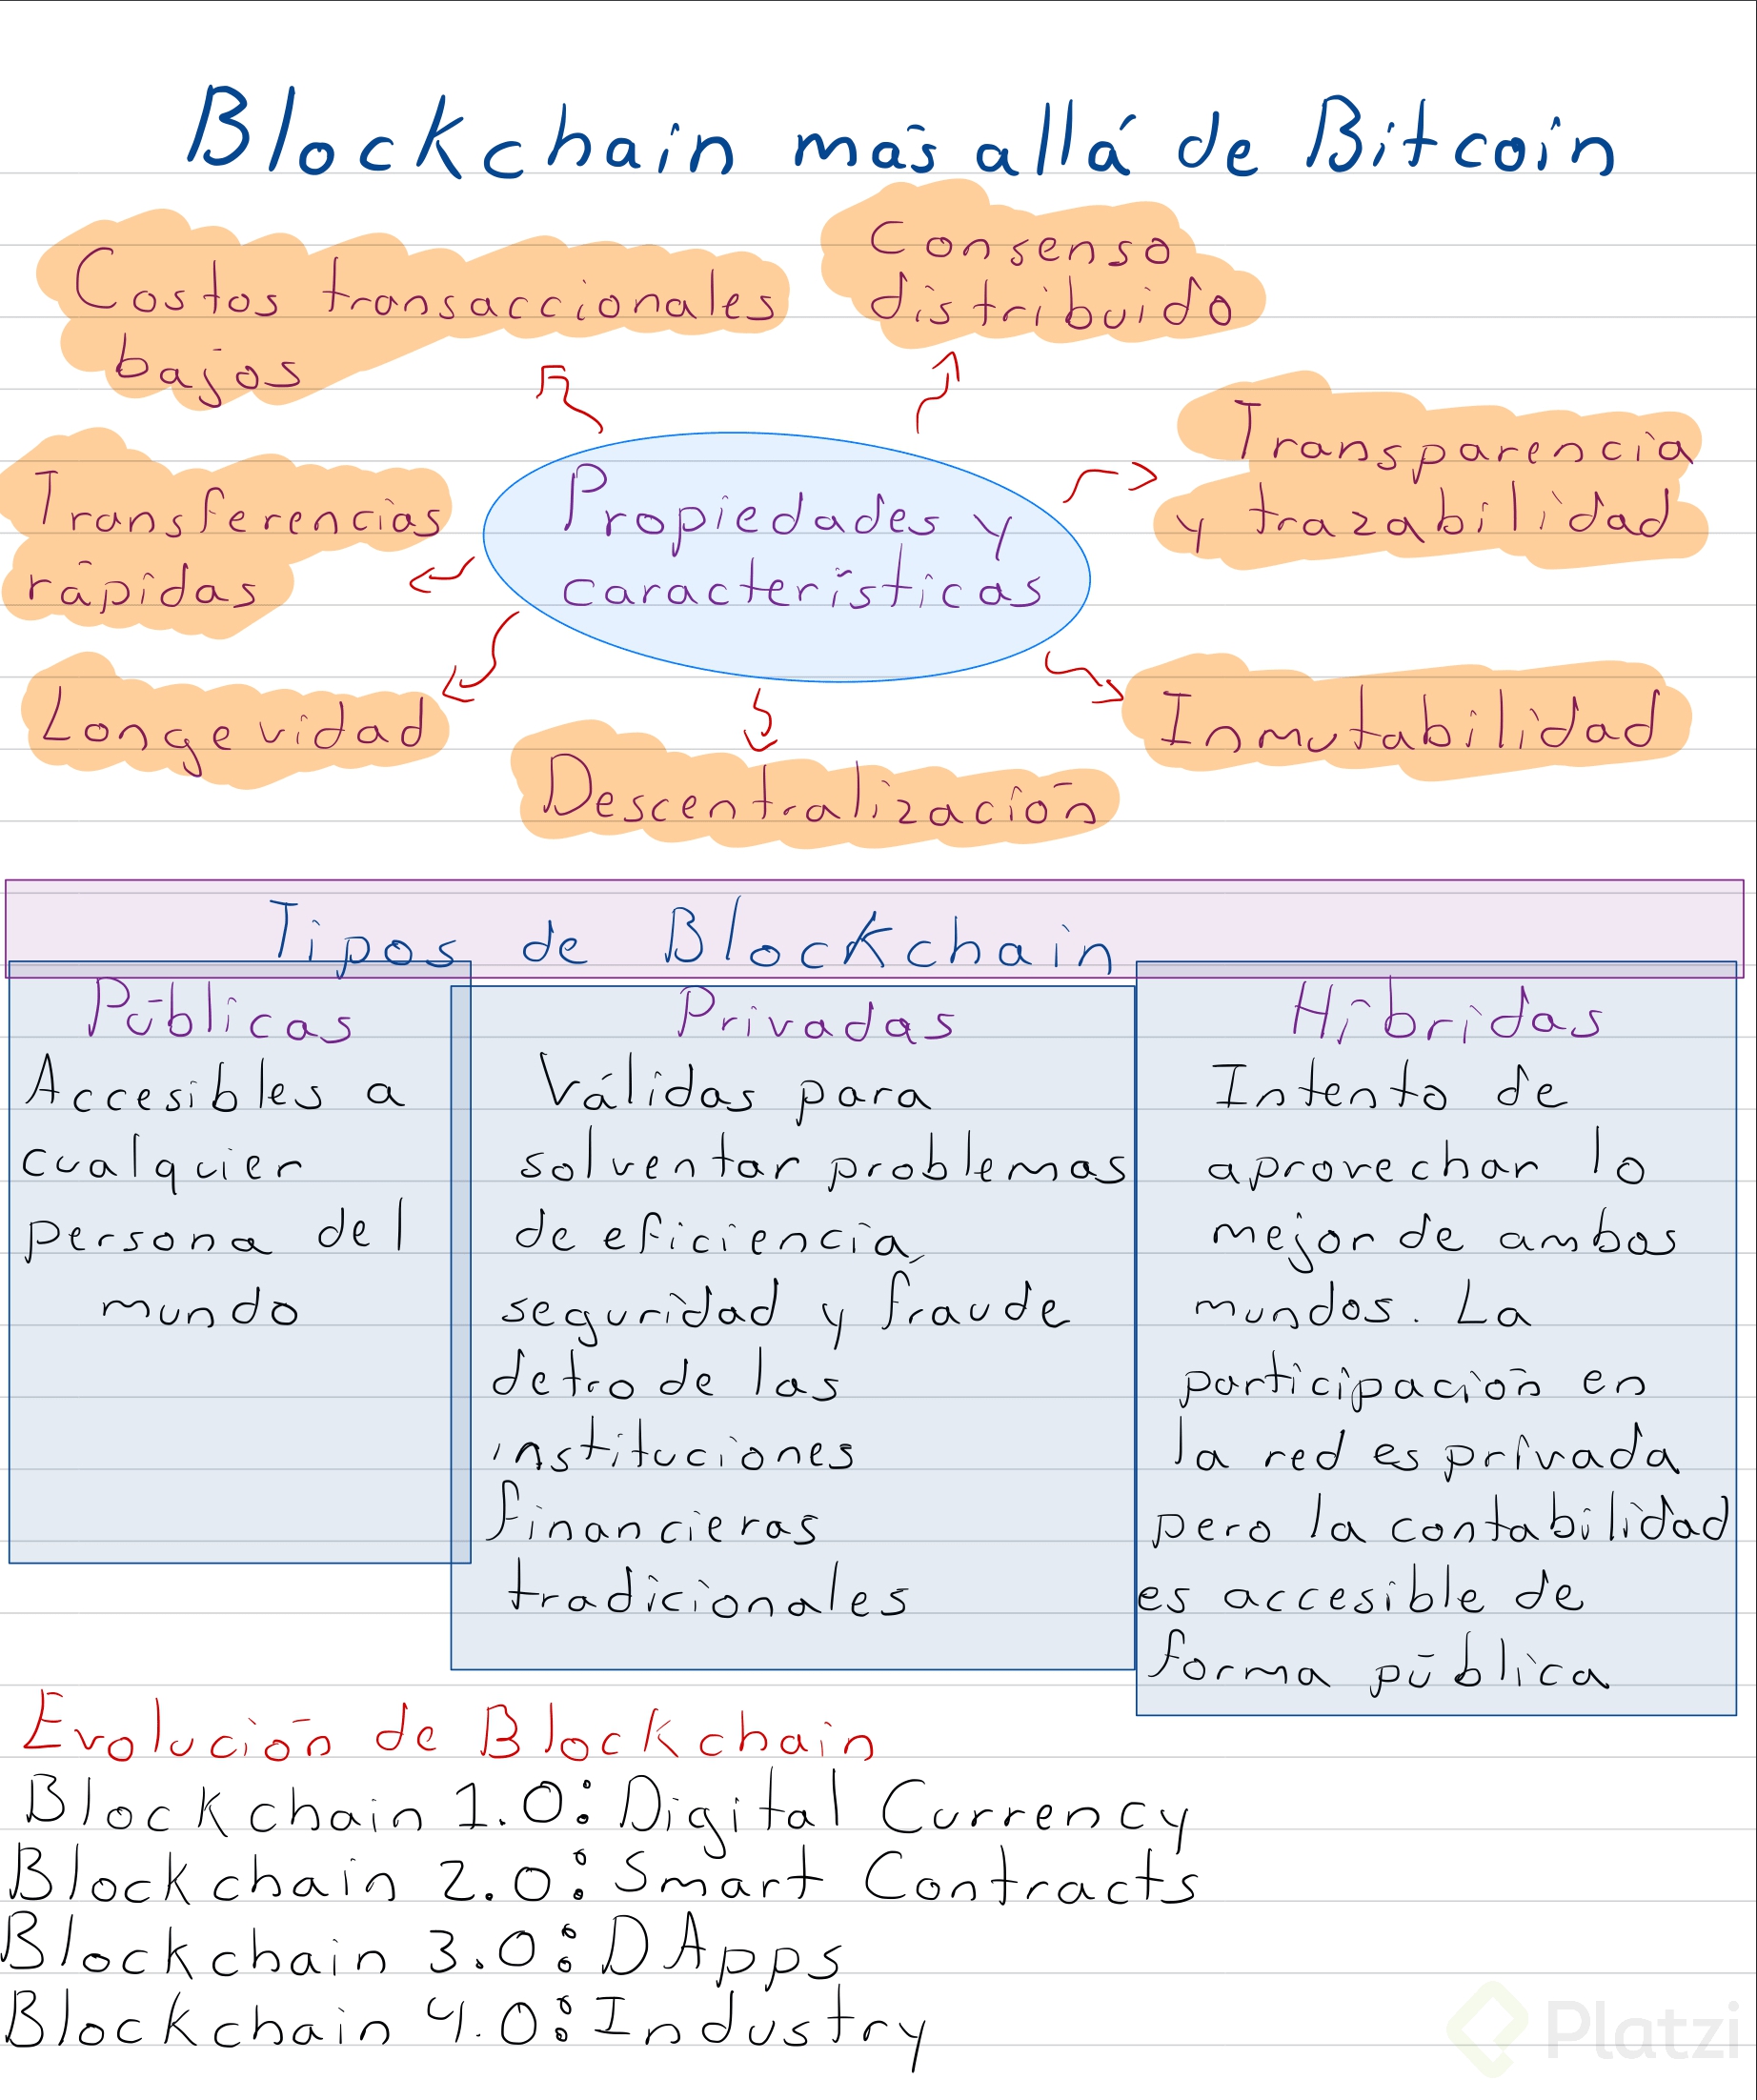 Blockchain más allá de Bitcoin
Costos transaccionales
bajos
Consenso
distribuido
Transferencias
rápidas
Propiedades y
características
Transparencia
y trazabilidad
Longevidad
Descentralización
Inmutabilidad
Tipos de Blockchain
Públicas
Accesibles a
cualquier
persona del
mundo
Privadas
Válidas para
solventar problemas
de eficiencia,
seguridad y fraude
detro de las
instituciones
financieras
tradicionales
Híbridas
Intento de
aprovechar lo
mejor de ambos
mundos. La
participación en
la red es privada
pero la contabilidad
es accesible de
forma pública
Evolución de Blockchain
Blockchain 1.0: Digital Currency
Blockchain 2.0: Smart Contracts
Blockchain 3.0: DApps
Blockchain 4.0: Industry
Platzi